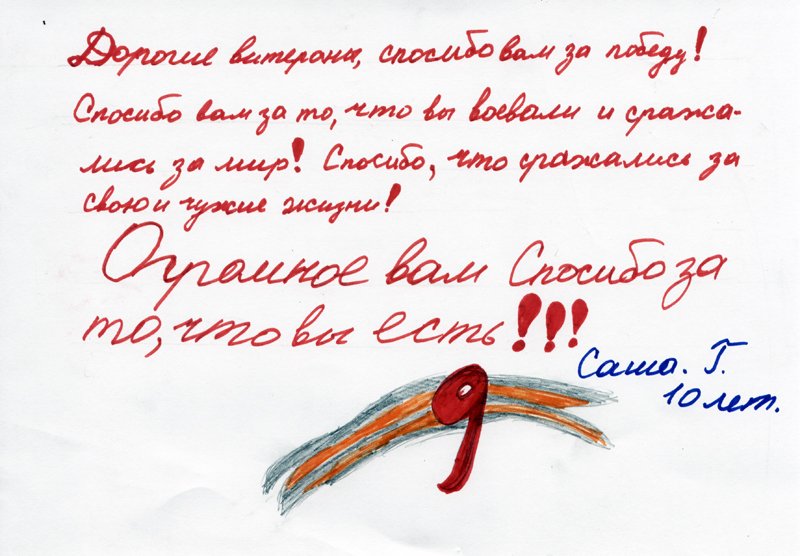 Дорогие витераны, спосибо вам за победу!
Спосибо вам за то, что вы воевали и сража-
лись за мир! Спосибо, что сражались за
свою и чужие жизни!
Огромное вам Спосибо за
то, что вы есть!!!
Саша. Г.
10 лет.
9